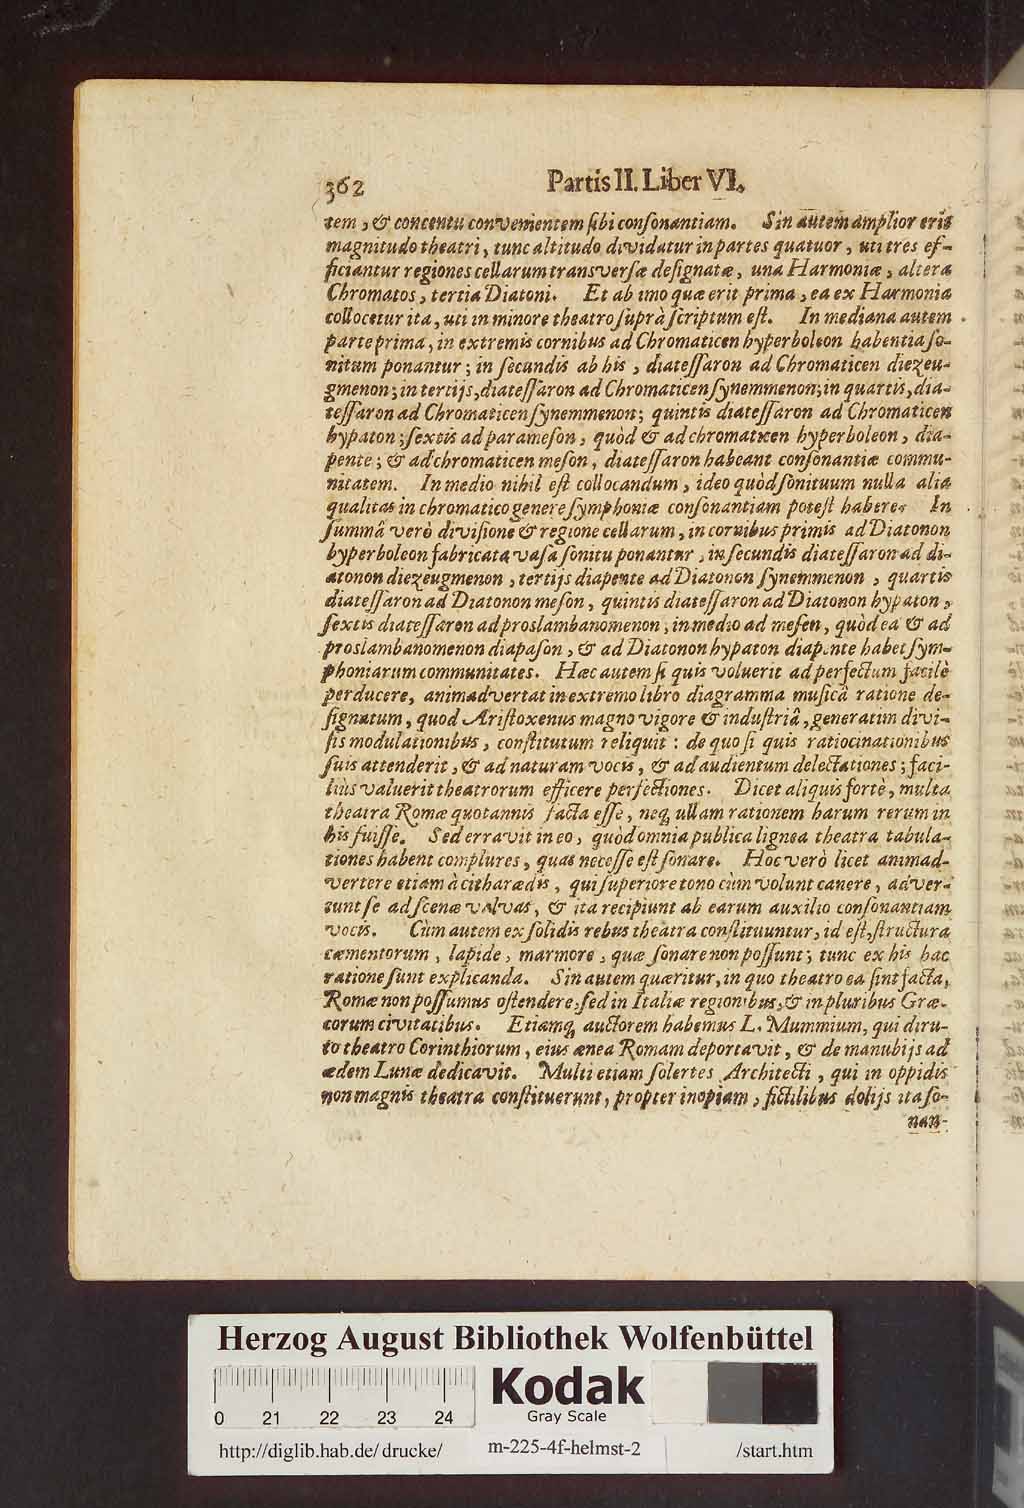 362 Partis II. Liber VI.
tem, & concentu convenientem ſibi conſonantiam. Sin autem amplior erit
magnitudo theatri, tunc altitudo dividatur in partes quatuor, uti tres ef-
ficiantur regiones cellarum transverſæ deſignatæ, una Harmoniæ, altera
Chromatos, tertia Diatoni. Et ab imo quæ erit prima, ea ex Harmonia
collocetur ita, uti in minore theatro ſuprà ſcriptum eſt. In mediana autem
parte prima, in extremis cornibus ad Chromaticen hyperboleon habentia ſo-
nitum ponantur; in ſecundis ab his, diateſſaron ad Chromaticen diezeu-
gmenon; in tertijs, diateſſaron ad Chromaticen ſynemmenon; in quartis, dia-
teſſaron ad Chromaticen ſynemmenon; quintis diateſſaron ad Chromaticen
hypaton; ſextis ad parameſon, quòd & ad chromaticen hyperboleon, dia-
pente; & ad chromaticen meſon, diateſſaron habeant conſonantiæ commu-
nitatem. In medio nihil eſt collocandum, ideo quòd ſonituum nulla alia
qualitas in chromatico genere ſymphoniæ conſonantiam poteſt habere. In
ſummâ verò diviſione & regione cellarum, in cornibus primis ad Diatonon
hyperboleon fabricata vaſa ſonitu ponantur, in ſecundis diateſſaron ad di-
atonon diezeugmenon, tertijs diapente ad Diatonon ſynemmenon, quartis
diateſſaron ad Diatonon meſon, quintis diateſſaron ad Diatonon hypaton,
ſextis diateſſaron ad proslambanomenon, in medio ad meſen, quòd ea & ad
proslambanomenon diapaſon, & ad Diatonon hypaton diapente habet ſym-
phoniarum communitates. Hæc autem ſi quis voluerit ad perfectum facilè
perducere, animadvertat in extremo libro diagramma muſicâ ratione de-
ſignatum, quod Ariſtoxenus magno vigore & induſtriâ, generatim divi-
ſis modulationibus, conſtitutum reliquit: de quo ſi quis ratiocinationibus
ſuis attenderit, & ad naturam vocis, & ad audientum delectationes; faci-
liùs valuerit theatrorum efficere perfectiones. Dicet aliquis fortè, multa
theatra Romæ quotannis facta eſſe, neq; ullam rationem harum rerum in
his fuiſſe. Sed erravit in eo, quòd omnia publica lignea theatra tabula-
tiones habent complures, quas neceſſe eſt ſonare. Hoc verò licet animad-
vertere etiam à citharædis, qui ſuperiore tono cùm volunt canere, adver-
tunt ſe ad ſcenæ valvas, & ita recipiunt ab earum auxilio conſonantiam
vocis. Cùm autem ex ſolidis rebus theatra conſtituuntur, id eſt, ſtructura
cæmentorum, lapide, marmore, quæ ſonare non poſſunt; tunc ex his hac
ratione ſunt explicanda. Sin autem quæritur, in quo theatro ea ſint facta,
Romæ non poſſumus oſtendere; ſed in Italiæ regionibus, & in pluribus Græ-
corum civitatibus. Etiamq; auctorem habemus L. Mummium, qui diru-
to theatro Corinthiorum, eius ænea Romam deportavit, & de manubijs ad
ædem Lunæ dedicavit. Multi etiam ſolertes Architecti, qui in oppidis
non magnis theatra conſtituerunt, propter inopiam, fictilibus dolijs ita ſo-
nan-
Herzog August Bibliothek Wolfenbüttel
0 21 22 23 24
Kodak
Gray Scale
http://diglib.hab.de/drucke/ m-225-4f-helmst-2 /start.htm